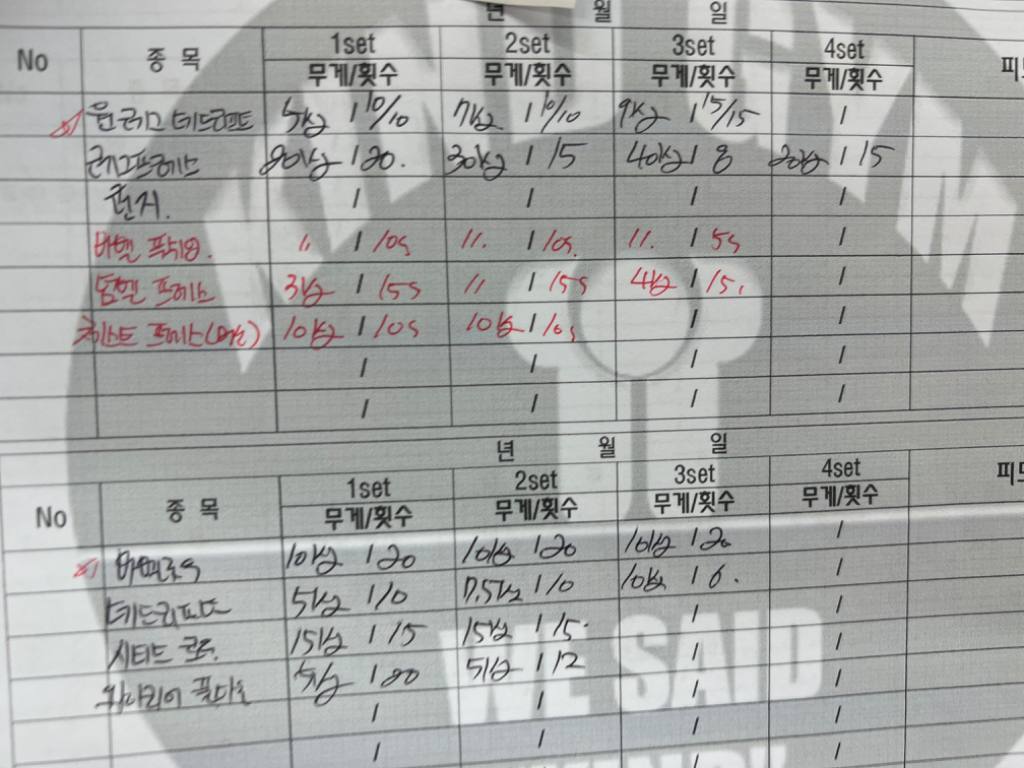 년 월 일
No 종 목 1set 2set 3set 4set
무게/횟수 무게/횟수 무게/횟수 무게/횟수 피드
원레그 데드리프트 5kg / 10/10 7kg / 10/10 9kg / 15/15 /
레그프레스 20kg / 20. 30kg / 15 40kg / 8 20kg / 15
런지. / / / /
바벨 푸쉬업. 〃 / 10s 〃. / 10s. 〃. / 5s /
덤벨 프레스 3kg / 15s 〃 / 15s 4kg / 15. /
체스트 프레스(머신) 10kg / 10s 10kg / 10s / /
/ / / /
/ / / /
년 월 일
No 종 목 1set 2set 3set 4set
무게/횟수 무게/횟수 무게/횟수 무게/횟수 피드
바벨로우 10kg / 20 10kg / 20 10kg / 20 /
데드리프트 5kg / 10 7.5kg / 10 10kg / 6. /
시티드 로우. 15kg / 15 15kg / 15. / /
풀다운 5kg / 20 5kg / 12 / /
/ / / /
/ / / /
WE SAID